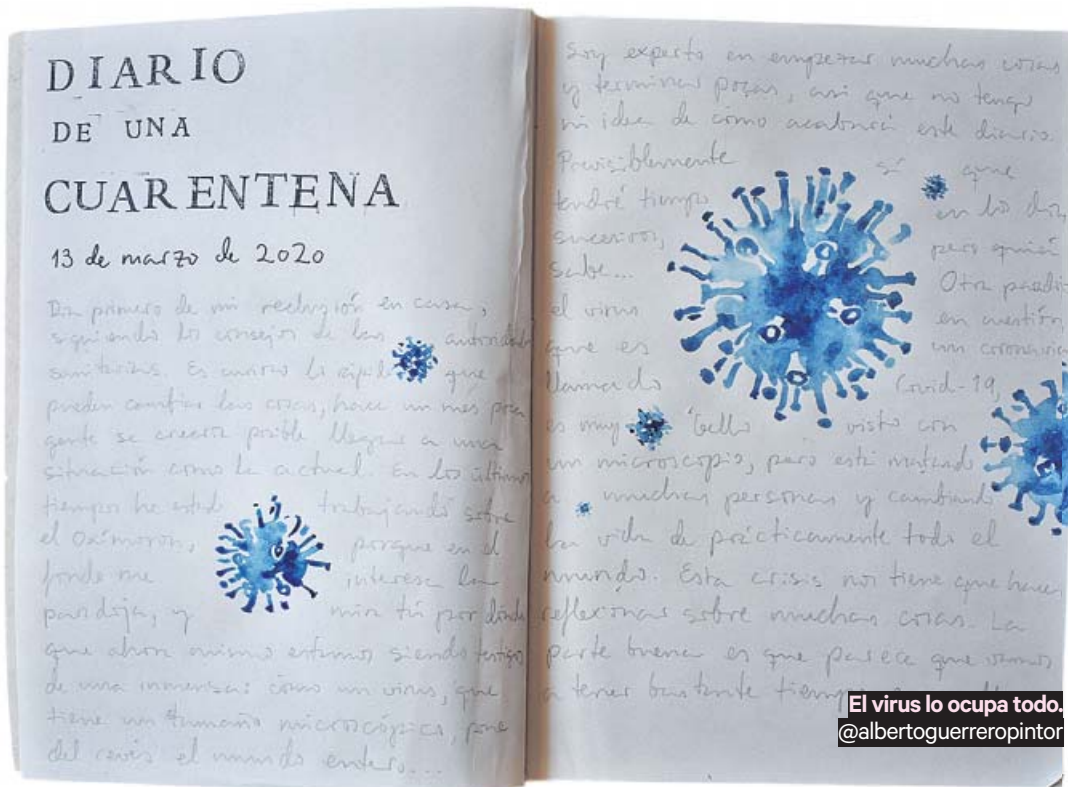 DIARIO
DE UNA
CUARENTENA
13 de marzo de 2020
Día primero de mi reclusión en casa,
siguiendo los consejos de las autoridades
sanitarias. Es curioso lo rápido que
pueden cambiar las cosas, hace un mes poca
gente se creería posible llegar a una
situación como la actual. En los últimos
tiempos he estado trabajando sobre
el oxímoron, porque en el
fondo me interesa la
paradoja, y mira tú por dónde
que ahora mismo estamos siendo testigos
de una inmensa: cómo un virus, que
tiene un tamaño microscópico, pone
del revés el mundo entero...
Soy experto en empezar muchas cosas
y terminar pocas, así que no tengo
ni idea de cómo acabará este diario.
Previsiblemente sí que
tendré tiempo en los días
sucesivos, pero quién
sabe... Otra paradoja
el virus en cuestión
que es un coronavirus
llamado Covid-19,
es muy bello visto con
un microscopio, pero está matando
a muchas personas y cambiando
la vida de prácticamente todo el
mundo. Esta crisis nos tiene que hacer
reflexionar sobre muchas cosas. La
parte buena es que parece que vamos
a tener bastante tiempo
El virus lo ocupa todo.
@albertoguerreropintor